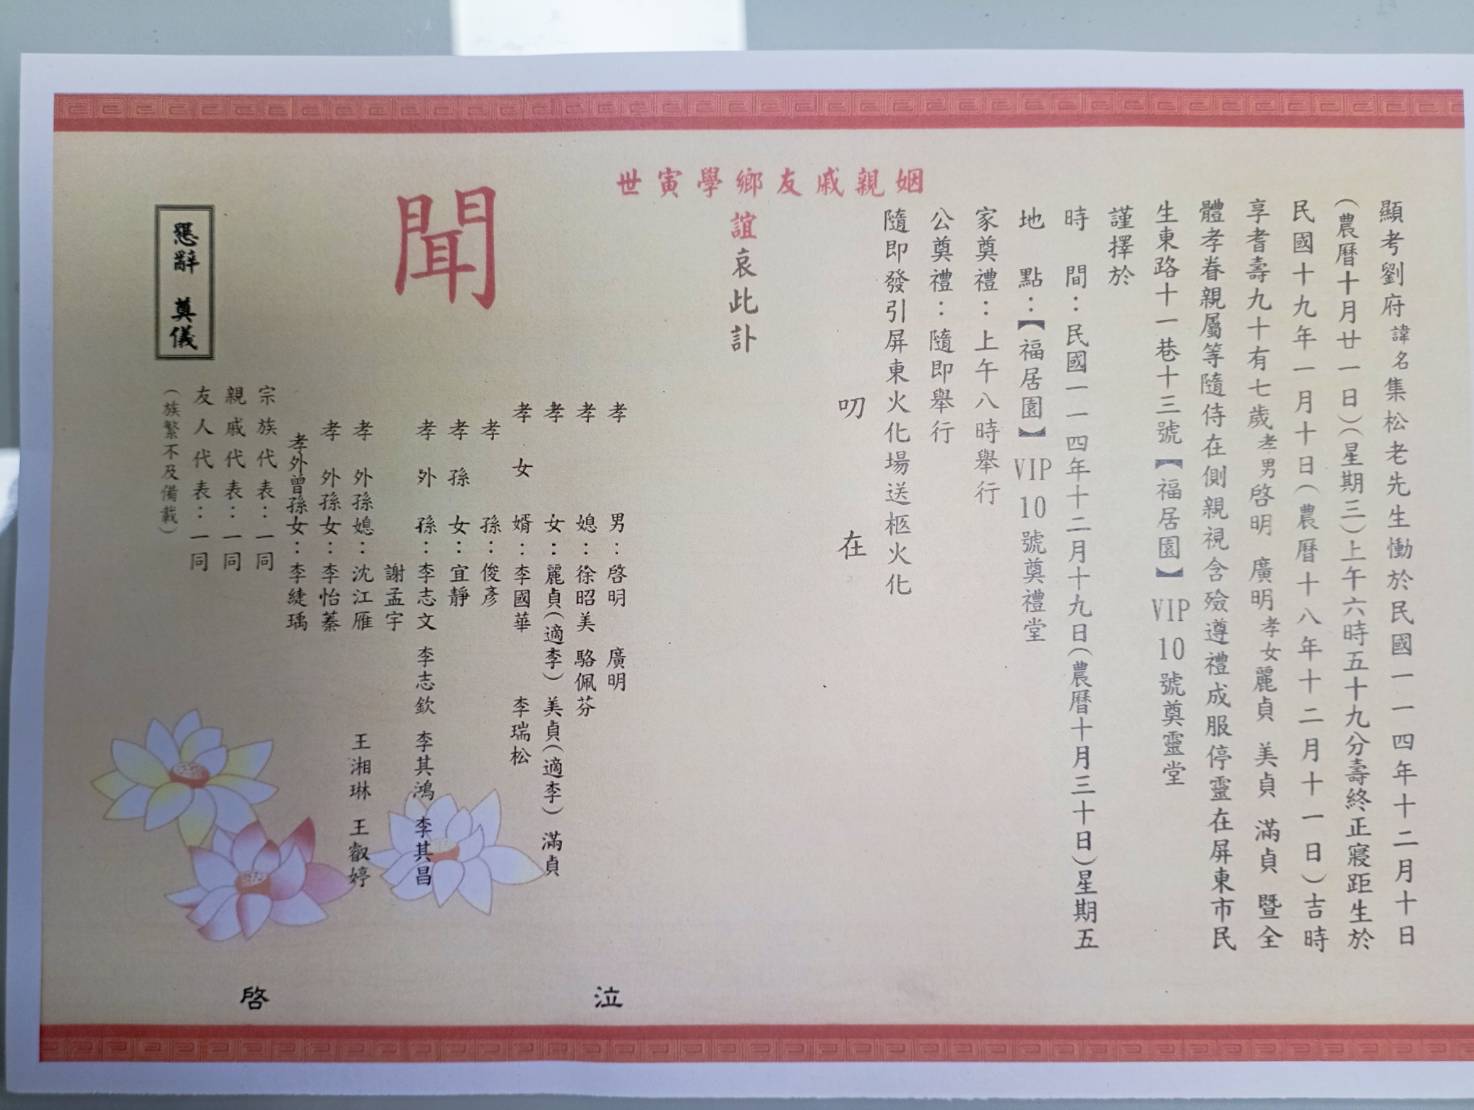 顯考劉府諱名集松老先生慟於民國一一四年十二月十日
(農曆十月廿一日)(星期三)上午六時五十九分壽終正寢距生於
民國十九年一月十日(農曆十八年十二月十一日)吉時
享耆壽九十有七歲孝男啓明 廣明孝女麗貞 美貞 滿貞 暨全
體孝眷親屬等隨侍在側親視含殮遵禮成服停靈在屏東市民
生東路十一巷十三號【福居園】VIP10號奠靈堂
謹擇於
時 間:民國一一四年十二月十九日(農曆十月三十日)星期五
地 點:【福居園】VIP10號奠禮堂
家奠禮:上午八時舉行
公奠禮:隨即舉行
隨即發引屏東火化場送柩火化
叨 在
姻親戚友鄉學寅世
誼哀此訃
聞
孝 男:啓明 廣明
孝 媳:徐昭美 駱佩芬
孝 女:麗貞(適李) 美貞(適李) 滿貞
孝 女 婿:李國華 李瑞松
孝 孫:俊彥
孝 孫 女:宜靜
孝 外 孫:李志文 李志欽 李其鴻 李其昌
謝孟宇
孝 外孫媳:沈江雁 王湘琳 王叡婷
孝 外孫女:李怡蓁
孝外曾孫女:李緁瑀
宗族代表:一同
親戚代表:一同
友人代表:一同
(族繁不及備載)
懇辭 奠儀
泣 啓